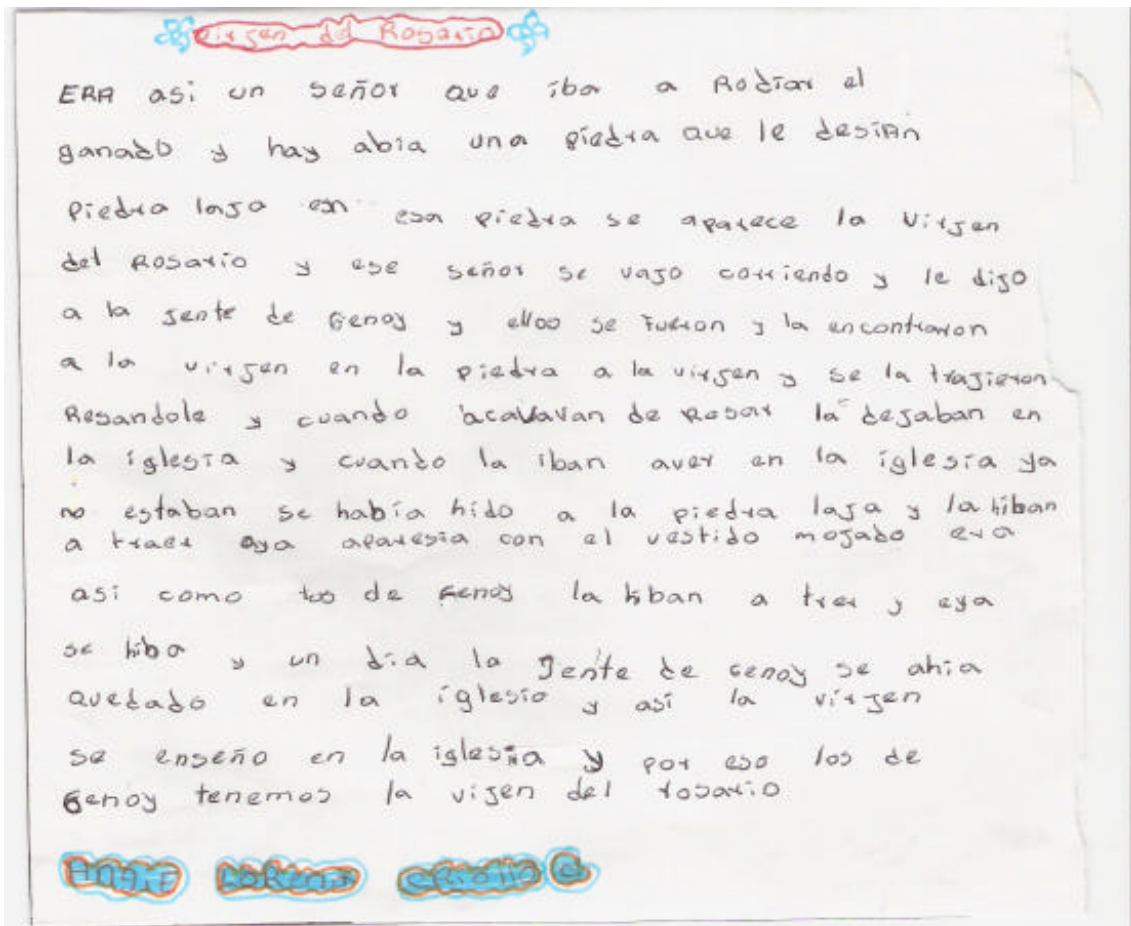 Virgen del Rosario
ERA asi un señor que iba a Rodiar el
ganado y hay abia una piedra que le desian
piedra laja en esa piedra se aparece la Virjen
del Rosario y ese señor se vajo corriendo y le dijo
a la jente de Genoy y ellos se fueron y la encontraron
a la virjen en la piedra a la virjen y se la trajieron
Resandole y cuando acavavan de Resar la dejaban en
la iglesia y cuando la iban aver en la iglesia ya
no estaban se había hido a la piedra laja y la hiban
a traer aya aparesia con el vestido mojado era
asi como los de Genoy la hiban a trer y eya
se hiba y un día la jente de Genoy se ahia
quedado en la iglesia y así la virjen
se enseño en la iglesia y por eso los de
Genoy tenemos la vijen del rosario
ANGIE LORENA CRIOllO C